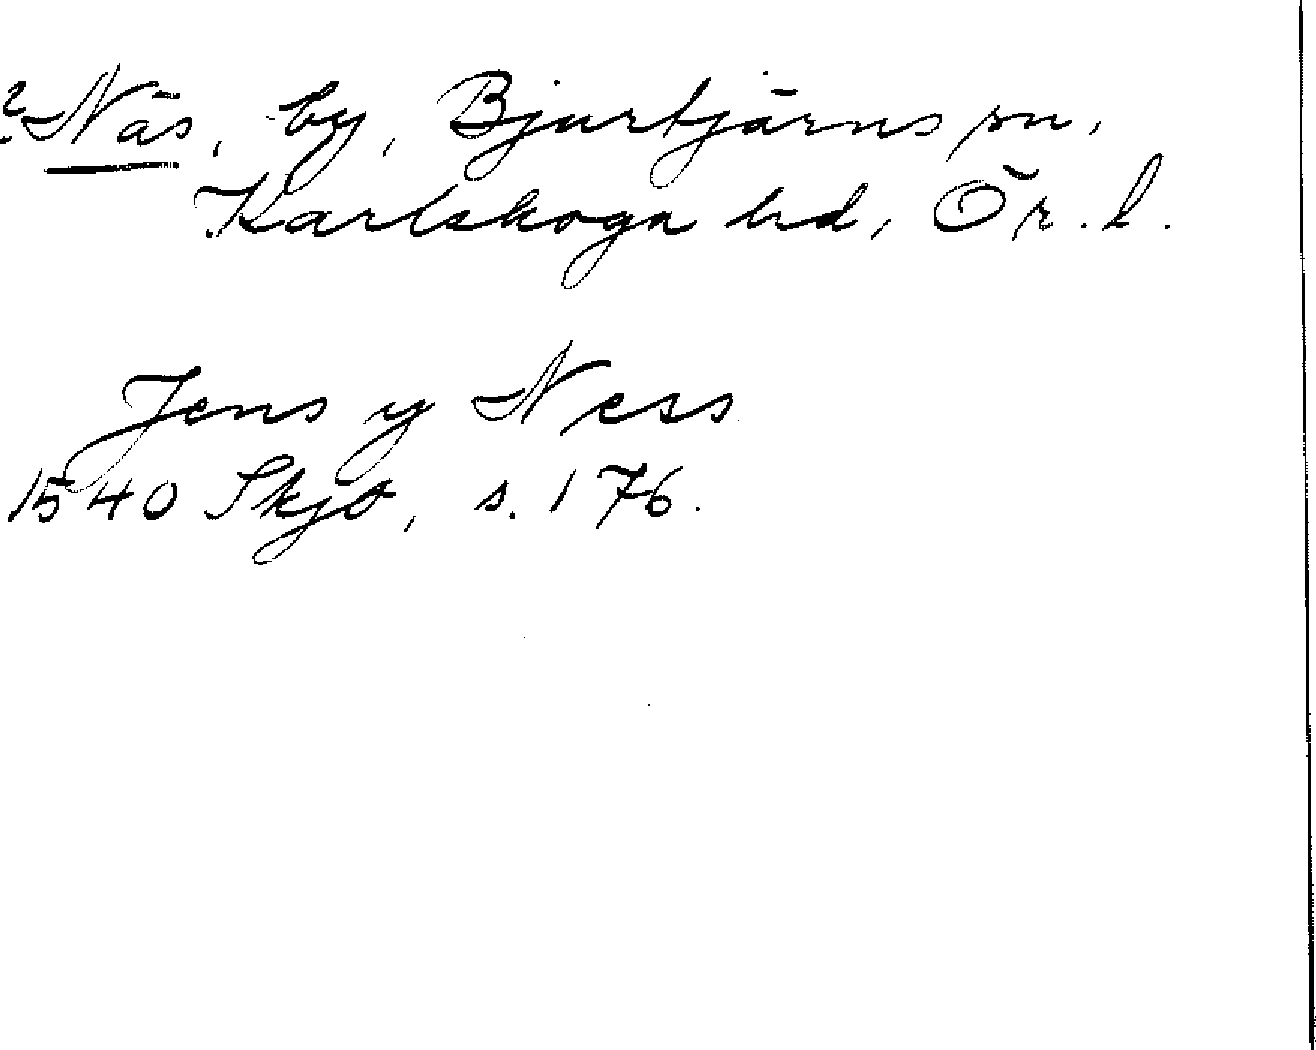 ? Näs, by, Bjurtjärns sn,
Karlskoga hd, Ör. l.
Jens y Ness
1540 Skjö, s. 176.